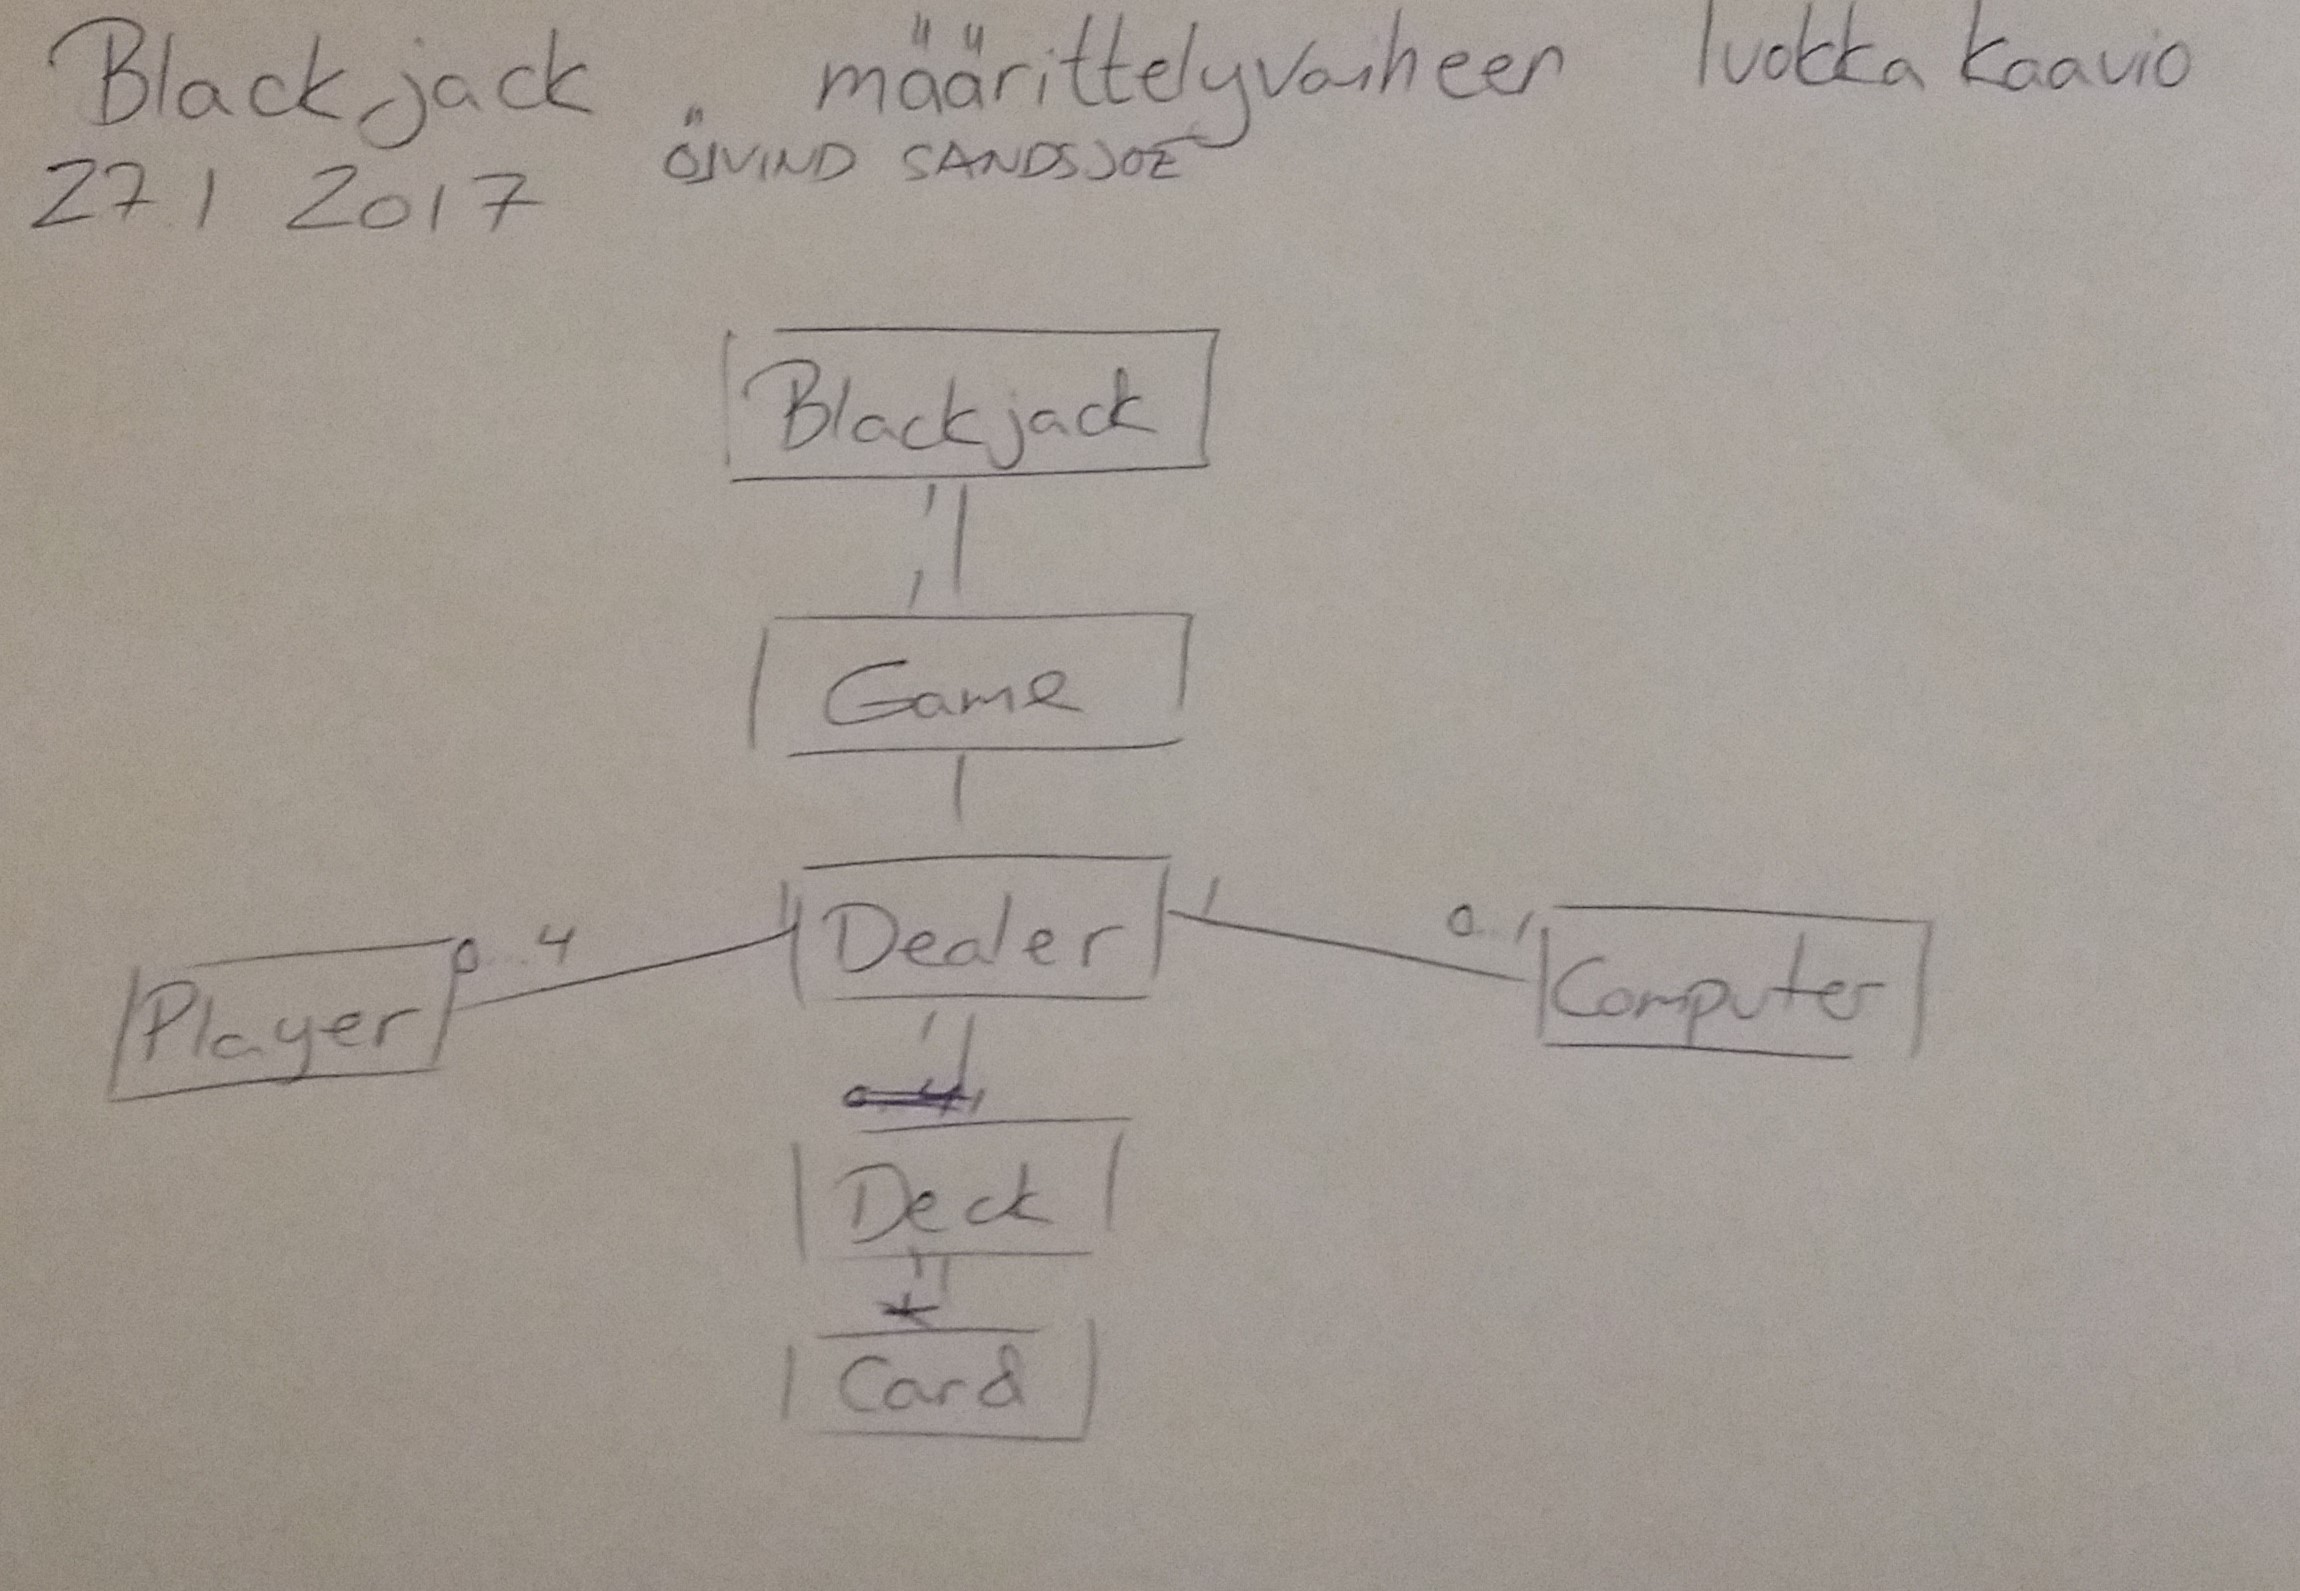 Blackjack määrittelyvaiheen luokkakaavio
27.1 2017 ÖJVIND SANDSJOE
Blackjack
1
1
Game
Dealer
1
1
0...4
0..1
Player
Computer
1
1
Deck
1
*
Card